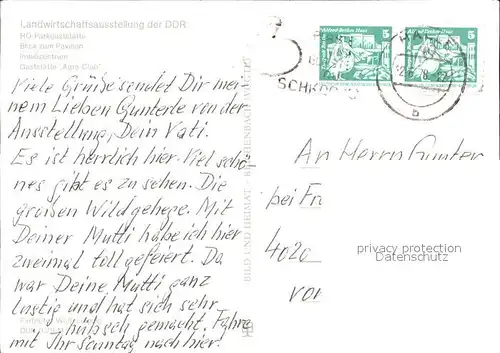 Landwirtschaftsausstellung der DDR
HO-Parkgaststätte
Blick zum Pavillon
Imbißzentrum
Gaststätte „Agra-Club"
Viele Grüße sendet Dir mei-
nem Lieben Gunterle von der
Ausstellung, Dein Vati.
Es ist herrlich hier. Viel schö-
nes gibt es zu sehen. Die
großen Wildgehege. Mit
Deiner Mutti habe ich hier
zweimal toll gefeiert. Da
war Deine Mutti ganz
lustig und hat sich sehr
hübsch gemacht. Fahre
mit Ihr Sonntag nach hier!
BILD UND HEIMAT
An Herrn Gunter
bei Fr
4020
vor
5
5
b
privacy protection
Datenschutz